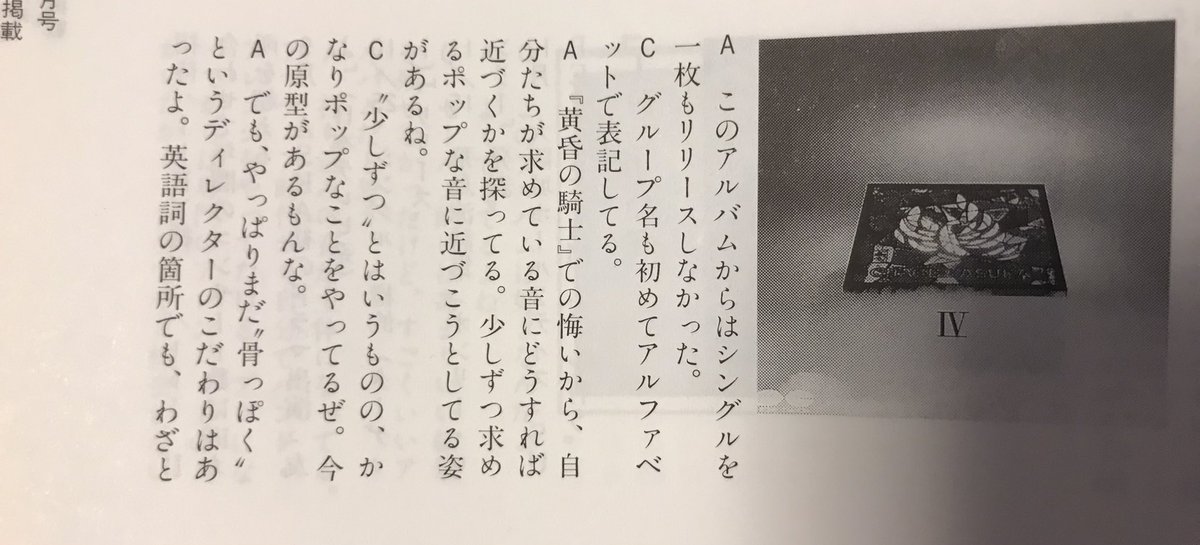 A　このアルバムからはシングルを
一枚もリリースしなかった。
C　グループ名も初めてアルファベ
ットで表記してる。
A　『黄昏の騎士』での悔いから、自
分たちが求めている音にどうすれば
近づくかを探ってる。少しずつ求め
るポップな音に近づこうとしてる姿
があるね。
C　〝少しずつ〟とはいうものの、か
なりポップなことをやってるぜ。今
の原型があるもんな。
A　でも、やっぱりまだ〝骨っぽく〟
というディレクターのこだわりはあ
ったよ。英語詞の箇所でも、わざと
CHAGE ASUKA
IV
月号
掲載